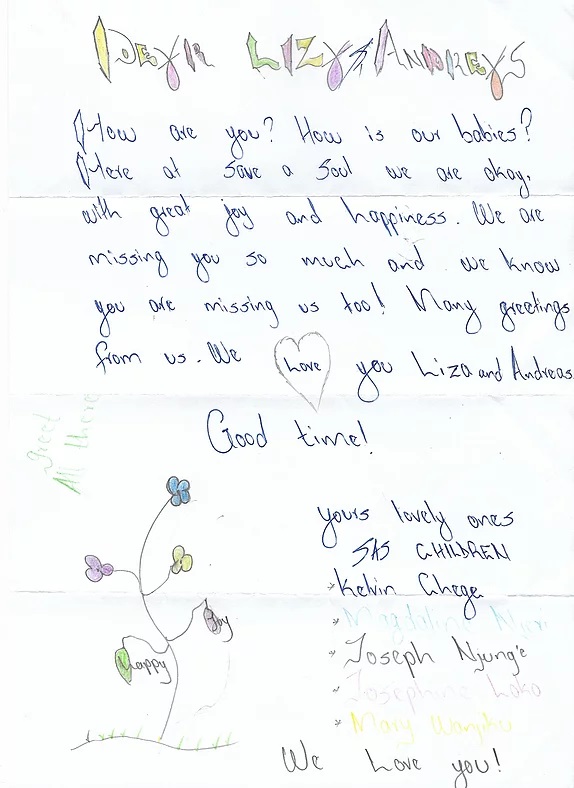 Dear Liza & Andreas
How are you? How is our babies?
Here at Save a Soul we are okay,
with great joy and happiness. We are
missing you so much and we know
you are missing us too! Many greetings
from us. We Love you Liza and Andreas
Good time!
Greet
All there
yours lovely ones
SAS CHILDREN
Kelvin Chege
Magdaline Njeri
Joseph Njung'e
Josephine Loko
Mary Wanjiku
Joy
Happy
We Love you!